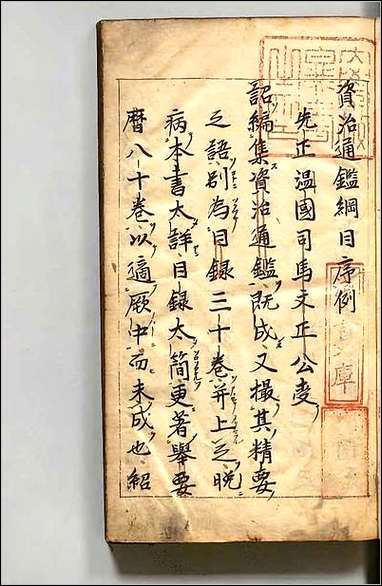 資治通鑑綱目序例
先正溫國司馬文正公受
詔編集資治通鑑既成又撮其精要
之語別為目録三十卷并上之晩
病本書太詳目録太簡更著舉要
曆八十卷以適厥中而未成也紹